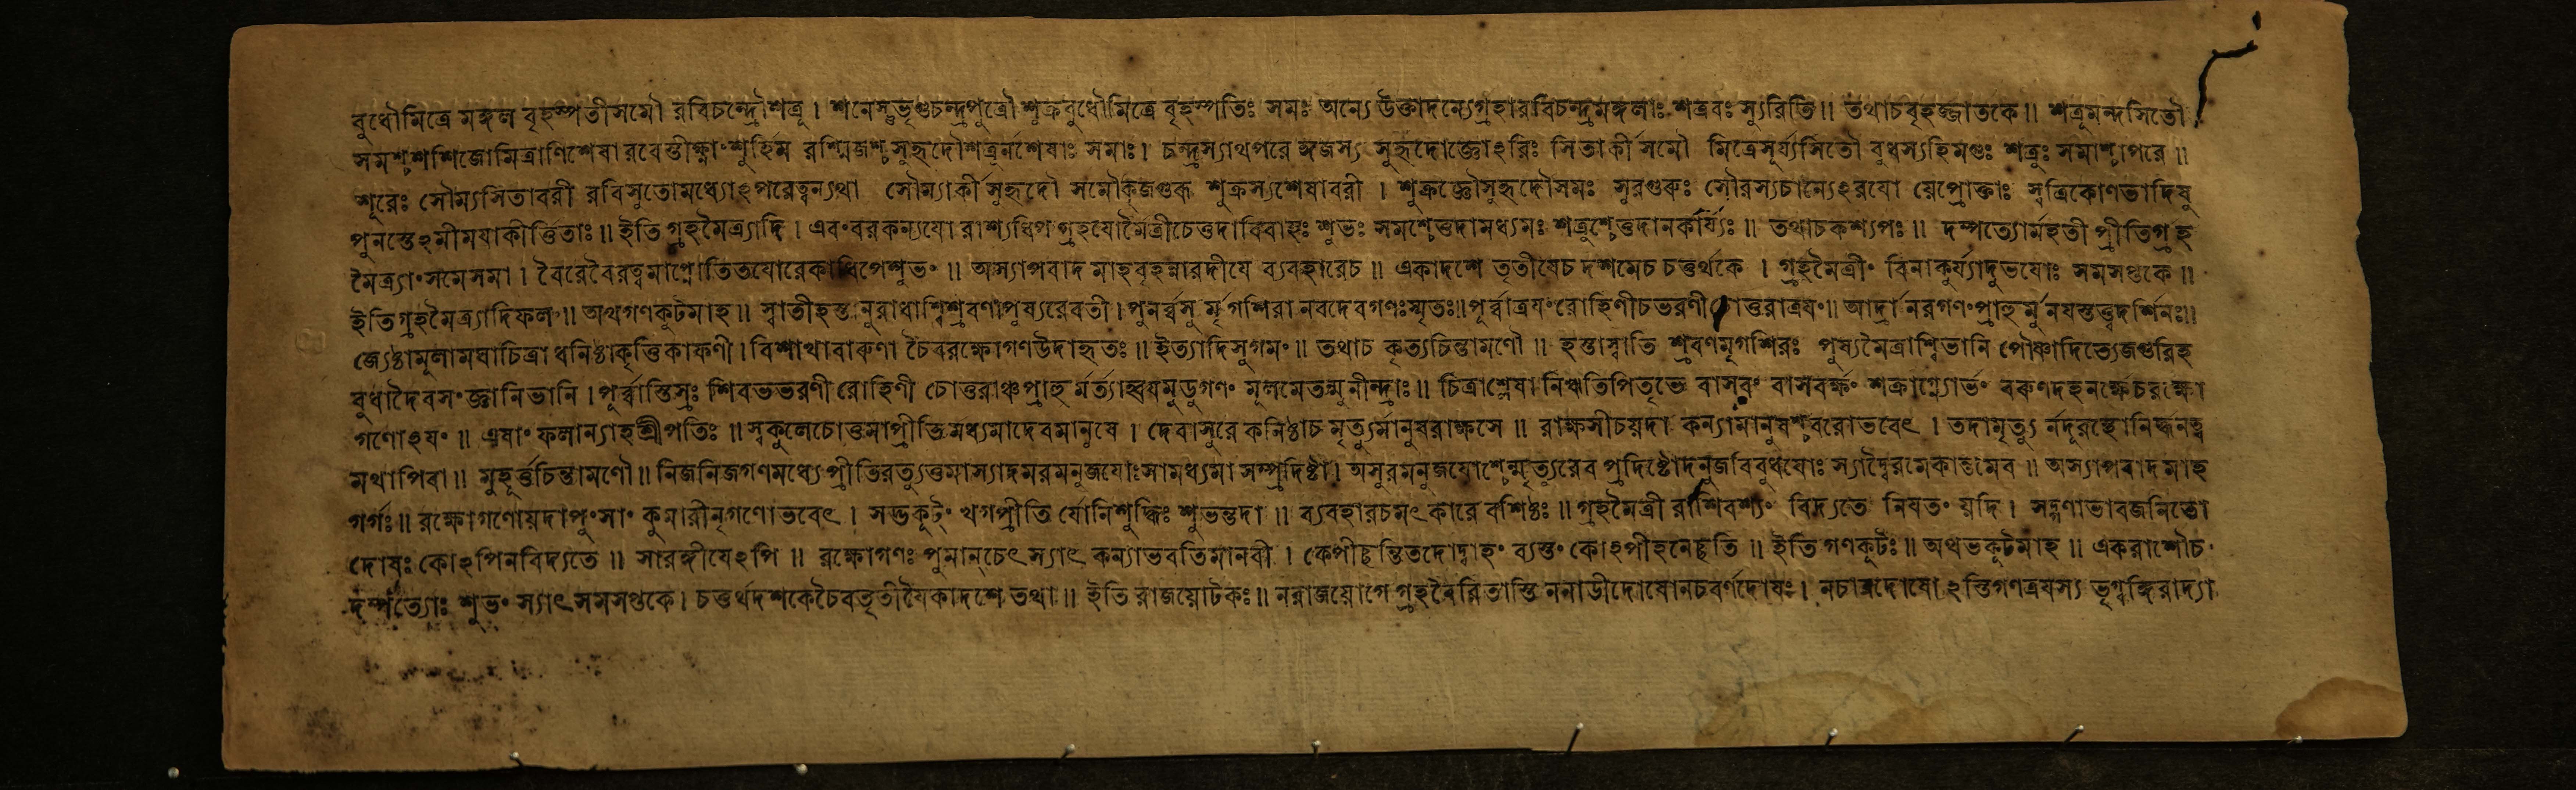 বুধৌমিত্রে মঙ্গল বৃহস্পতীসমৌ রবিচন্দ্রৌশত্রূ । শনেস্তুভৃগুচন্দ্রপুত্রৌ শুক্রবুধৌমিত্রে বৃহস্পতিঃ সমঃ অন্যে উক্তাদন্যেগ্রহারবিচন্দ্রমঙ্গলাঃ শত্রবঃ স্যুরিতি ॥ তথাচবৃহজ্জাতকে ॥ শত্রূমন্দসিতৌ
সমশ্চশশিজোমিত্রাণিশেষারবেস্তীক্ষ্ণাংশুর্হিম রশ্মিজশ্চসুহৃদৌশত্রুর্নশেষাঃ সমাঃ । চন্দ্রস্যাথপরে ঙ্গজস্য সুহৃদোজ্ঞোঽরিঃ সিতার্কীসমৌ মিত্রেসূর্য্যসিতৌ বুধস্যহিমগুঃ শত্রুঃ সমাশ্চাপরে ॥
শূরেঃ সৌম্যসিতাবরী রবিসুতোমধ্যোঽপরেত্বন্যথা সৌম্যার্কীসুহৃদৌ সমৌকুজগুরূ শুক্রস্যশেষাবরী । শুক্রজ্ঞৌসুহৃদৌসমঃ সুরগুরুঃ সৌরস্যচান্যেঽরযো য়েপ্রোক্তাঃ স্বত্রিকোণভাদিষু
পুনস্তেঽমীময়াকীর্ত্তিতাঃ ॥ ইতি গ্রহমৈত্র্যাদি । এবংবরকন্যযো রাশ্যধিপ গ্রহযোর্মৈত্রীচেত্তদাবিবাহঃ শুভঃ সমশ্চেত্তদামধ্যমঃ শত্রুশ্চেত্তদানকার্য্যঃ ॥ তথাচকশ্যপঃ ॥ দম্পত্যোর্মহতী প্রীতির্গ্রহ
মৈত্র্যাংসমেসমা । বৈরেবৈরত্বমাপ্নোতিতযোরেকাধিপেশুভং ॥ অস্যাপবাদ মাহবৃহন্নারদীযে ব্যবহারেচ ॥ একাদশে তৃতীযেচ দশমেচ চতুর্থকে । গ্রহমৈত্রীং বিনাকুর্য্যাদুভযোঃ সমসপ্তকে ॥
ইতিগ্রহমৈত্র্যাদিফলং ॥ অথগণকুটমাহ ॥ স্বাতীহস্ত নুরাধাশ্বিশ্রবণাপুষ্যরেবতী । পুনর্ব্বসু র্মৃগশিরা নবদেবগণঃস্মৃতঃ ॥ পূর্ব্বাত্রযংরোহিণীচভরণীচোত্তরাত্রযং ॥ আর্দ্রানরগণংপ্রাহুর্মুনযস্তত্ত্বদর্শিনঃ ॥
জ্যেষ্ঠামূলামঘাচিত্রা ধনিষ্ঠাকৃত্তিকাফণী । বিশাখাবারুণা চৈবরক্ষোগণউদাহৃতঃ ॥ ইত্যাদিসুগমং ॥ তথাচ কৃত্যচিন্তামণৌ ॥ হস্তাস্বাতি শ্রবণমৃগশিরঃ পুষ্যমৈত্রাশ্বিভানি পৌষ্ণাদিত্যেজগুরিহ
বুধাদৈবসংজ্ঞানিভানি । পূর্ব্বাস্তিস্রঃ শিবভভরণী রোহিণী চোত্তরাঞ্চপ্রাহু র্মর্ত্যাহ্বযমুডুগণং মূলমেতন্মুনীন্দ্রাঃ ॥ চিত্রাশ্লেষা নিঋতিপিতৃভে বাসবং বাসবর্ক্ষং শক্রাগ্ন্যোর্ভং বরুণদহনর্ক্ষেচরক্ষো
গণোঽযং ॥ এষাং ফলান্যাহশ্রীপতিঃ ॥ স্বকুলেচোত্তমাপ্রীতির্মধ্যমাদেবমানুষে । দেবাসুরে কনিষ্ঠাচ মৃত্যুর্মানুষরাক্ষসে ॥ রাক্ষসীচয়দা কন্যামানুষশ্চবরোভবেৎ । তদামৃত্যু র্নদূরস্থোনির্দ্ধনত্ব
মথাপিবা ॥ মুহূর্ত্তচিন্তামণৌ ॥ নিজনিজগণমধ্যেপ্রীতিরত্যুত্তমাস্যাদমরমনুজযোঃসামধ্যমা সম্প্রদিষ্টা । অসুরমনুজযোশ্চেন্মৃত্যুরেব প্রদিষ্টোদনুজবিবুধযোঃ স্যাদ্বৈরমেকান্তমেব ॥ অস্যাপবাদমাহ
গর্গঃ ॥ রক্ষোগণোয়দাপুংসাং কুমারীনৃগণোভবেৎ । সদ্ভকূটং খগপ্রীতি র্যোনিশুদ্ধিঃ শুভন্তদা ॥ ব্যবহারচমৎকারে বশিষ্ঠঃ ॥ গ্রহমৈত্রী রাশিবশ্যং বিদ্যতে নিযতং য়দি । সদ্গণাভাবজনিতো
দোষঃ কোঽপিনবিদ্যতে ॥ সারঙ্গীযেঽপি ॥ রক্ষোগণঃ পুমান্চেৎস্যাৎ কন্যাভবতিমানবী । কেপীচ্ছন্তিতদোদ্বাহং ব্যস্তং কোঽপীহনেচ্ছতি ॥ ইতি গণকূটঃ ॥ অথভকূটমাহ ॥ একরাশৌচ
দম্পত্যোঃ শুভং স্যাৎসমসপ্তকে । চতুর্থদশকেচৈবতৃতীযৈকাদশে তথা ॥ ইতি রাজয়োটকঃ ॥ নরাজয়োগে গ্রহবৈরিতাস্তি ননাডীদোষোনচবর্ণদোষঃ । নচারদোষো ঽস্তিগণত্রযস্য ভৃগ্বঙ্গিরাদ্যা